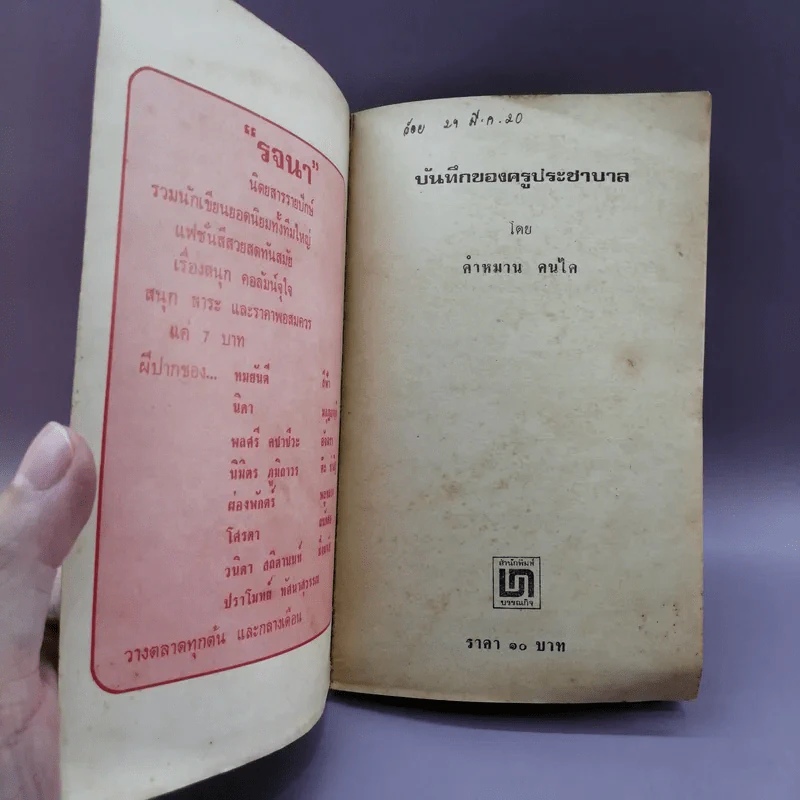 “รจนา”
นิตยสารรายปักษ์
รวมนักเขียนยอดนิยมทั้งทีมใหญ่
แฟชั่นสีสวยสดทันสมัย
เรื่องสนุก คอลัมน์จุใจ
สนุก สาระ และราคาพอสมควร
แค่ 7 บาท
ฝีปากของ...
ทมยันตี
นิดา
พลศรี คชาชีวะ
นิมิตร ภูมิถาวร
ผ่องพักตร์
โศรดา
วนิดา สถิตานนท์
ปราโมทย์ ทัศนาสุวรรณ
วางตลาดทุกต้น และกลางเดือน
29 มี.ค. 20
บันทึกของครูประชาบาล
โดย
คำหมาน คนไค
สำนักพิมพ์
บรรณกิจ
ราคา ๑๐ บาท